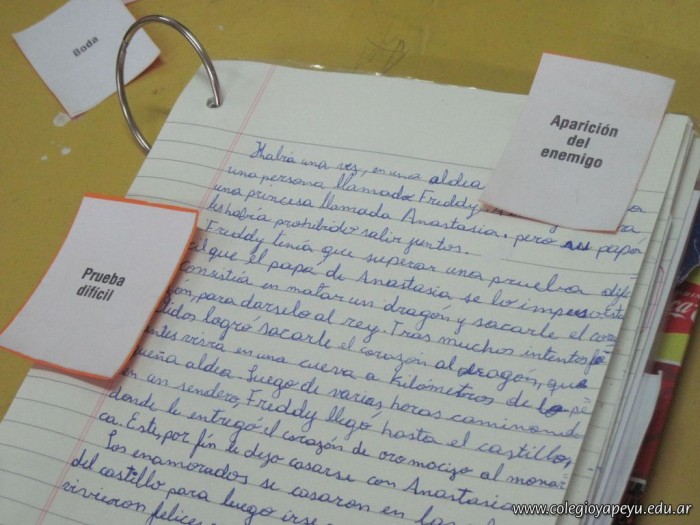 Boda
Aparición
del
enemigo
Prueba
difícil
Había una vez, en una aldea
una persona llamada Freddy
una princesa llamada Anastasia. pero su papá
les había prohibido salir juntos.
Freddy tenía que superar una prueba
que el papa de Anastasia se lo impuso. Esta
consistía en matar un dragón y sacarle el
para darselo al rey. Tras muchos intentos
logró sacarle el corazón al dragón, que
vivía en una cueva a kilómetros de la
aldea. Luego de varias horas caminando
en un sendero, Freddy llegó hasta el castillo,
donde le entregó el corazón de oro mocizo al monar
ca. Este, por fin le dejo casarse con Anastasia
Los enamorados se casaron en
del castillo para luego irse
vivieron felices
Coca
www.colegioyapeyu.edu.ar